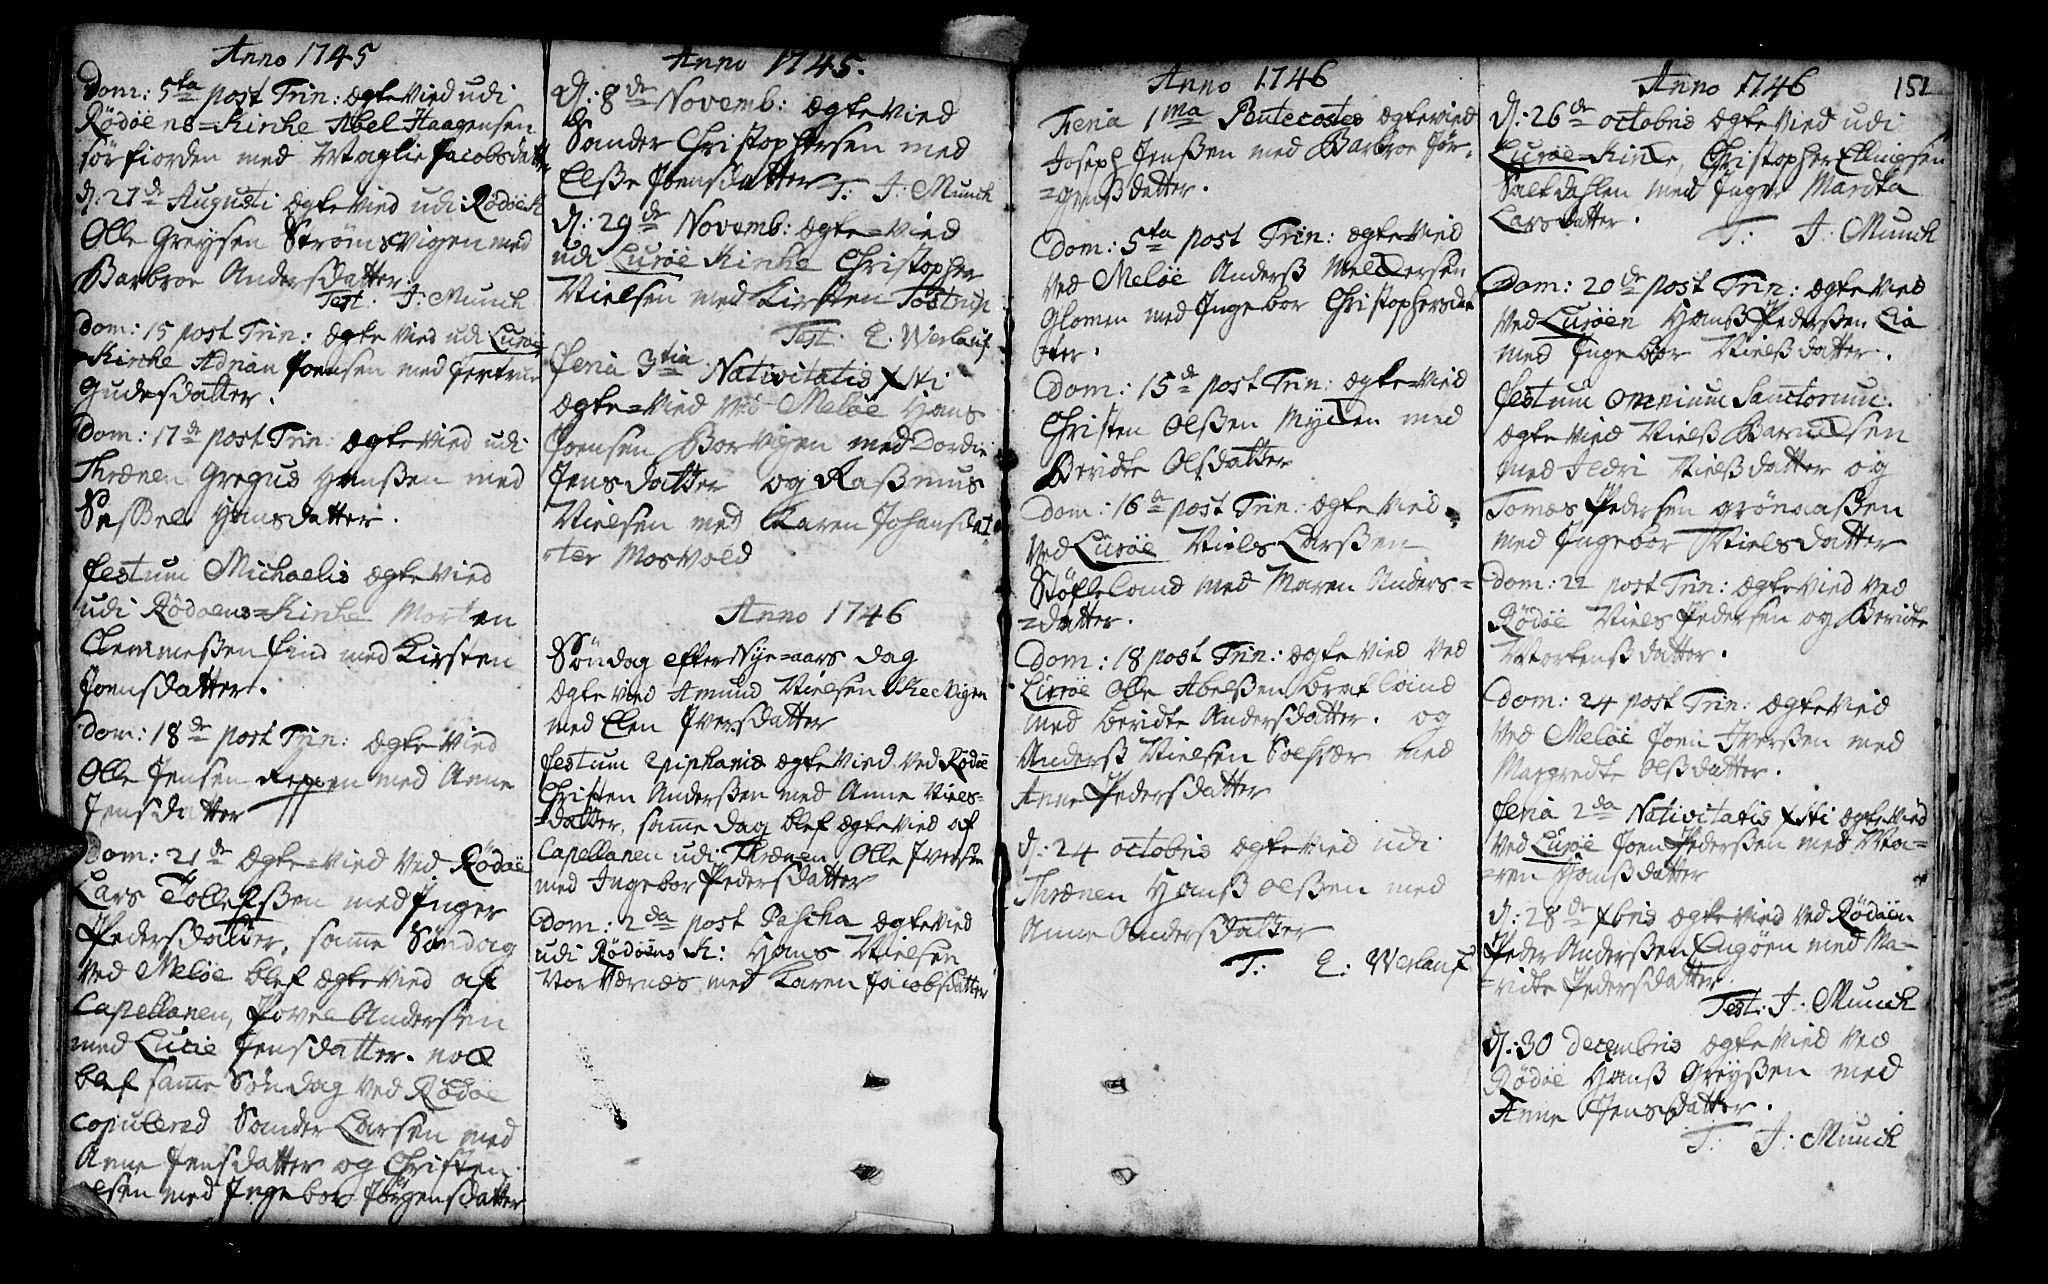 Anno 1745
Dom: 5ta post Trin: ægte vied udi
Rödöens=Kirke Abel Haagensen
sörfiorden med Maglie Jacobsdatt
d: 21de Augusti ægte vied udi Rödöe K
Olle Greysen Strömsvigen med
Barbroe Andersdatter.
Test. J: Munch
Dom: 15 post Trin: ægte vied udi Luröe
Kirche Adrian Joensen med Gertrue
Gudesdatter.
Dom: 17de post Trin: ægte vied udi
Thrænen Gregus Hanßen med
Seßel Hansdatter.
festum Michaelis ægte vied
udi Rödöens=Kirke Morten
Clemmeßen find med Kirsten
Joensdatter.
Dom: 18de post Trin: ægte vied
Olle Jensen Reppen med Anne
Jensdatter
Dom: 21de ægte=vied ved Rödöe
Lars Tollefßen med Inger
Pedersdatter, samme Söndag
ved Melöe blef ægte vied af
Capellanen, Povel Andersen
med Lucie Jensdatter. nock
blef samme Söndag ved Rödöe
copulered Sander Larsen med
Anne Jensdatter og Christen
olsen med Ingebor Jörgensdatter
Anno 1745.
d: 8de Novemb: ægte vied
Sander Christophersen med
Elsße Joensdatter T: J: Munch
d: 29de Novemb: ægte=vied
udi Luröe Kirke Christopher
Nielsen med Kirsten Tostrup
Test. E. Werlauf
feria 3tia Nativitatis Xsti
ægte=vied ved Melöe Hans
Joensen Borvigen med Dordie
Jensdatter og Raßmus
Nielsen med Karen Johansdat
ter Mosvold
Anno 1746
Söndag efter Nye=aars dag
ægte vied Amund Nielsen Skeevigen
med Elen Iversdatter
festum Epiphanis ægte vied ved Rödöe
Christen Anderßen med Anne Niels=
=datter, samme dag blef ægte vied af
Capellanen udi Thrænen, Olle Iversen
med Ingebor Pedersdatter
Dom: 2da post Pascha ægte vied
udi Rödöens K: Hans Nielsen
Nor Værnæs med Karen Jacobsdatter
Anno 1746
Feria 1ma Pentecostes ægte vied
Joseph Jenßen med Barbroe Jör=
=genßdatter.
Dom: 5ta post Trin: ægte vied
ved Melöe Anderß Meldersen
Glomen med Ingebor Christophersda
tter.
Dom: 15de post Trin: ægte=vied
Christen Olßen Mycken med
Beridte Olsdatter
Dom: 16de post Trin: ægte vied
ved Luröe Niels Larßen
Stöfleland med Maren Anders=
=datter.
Dom: 18 post Trin: ægte vied ved
Luröe Olle Abelßen Brafland
med Beridte Andersdatter. og
Anderß Nielsen Solvær med
Anne Pedersdatter
d: 24 octobris ægte vied udi
Thrænen Hanß Olßen med
Anne Andersdatter
T: E: Werlauf
Anno 1746 151
d: 26de octobris ægte vied udi
Luröe Kirke, Christopher Ellingsen
Saltdahlen med Inger Martha
Larsdatter.
T: J: Munch
Dom: 20de post Trin: ægte vied
ved Luröen Hanß Pederßen Lia
med Ingebor Nielßdatter.
festum omnium Sanctorum:
ægte vied Nielß Barndsen
med Sidri Nielßdatter og
Tomæs Pedersen Grönaaßen
med Ingebor Nielsdatter
Dom: 22 post Trin: ægte vied ved
Rödöe Niels Pedersen og Beridte
Mortenßdatter.
Dom: 24 post Trin: ægte vied
ved Melöe Joen Iverßen med
Margredte Olßdatter.
feria 2da Nativitatis Xsti ægte vied
ved Luröe Joen Pederßen med Ma=
=ren Hanßdatter
d: 28de Xbris ægte vied ved Rödöen
Peder Anderßen Engöen med Ma=
=ridte Pedersdatter
Test: J: Munch
d: 30 Decembris ægte vied ved
Rödöe Hanß Greyßen med
Anne Jensdatter.
T: J: Munch